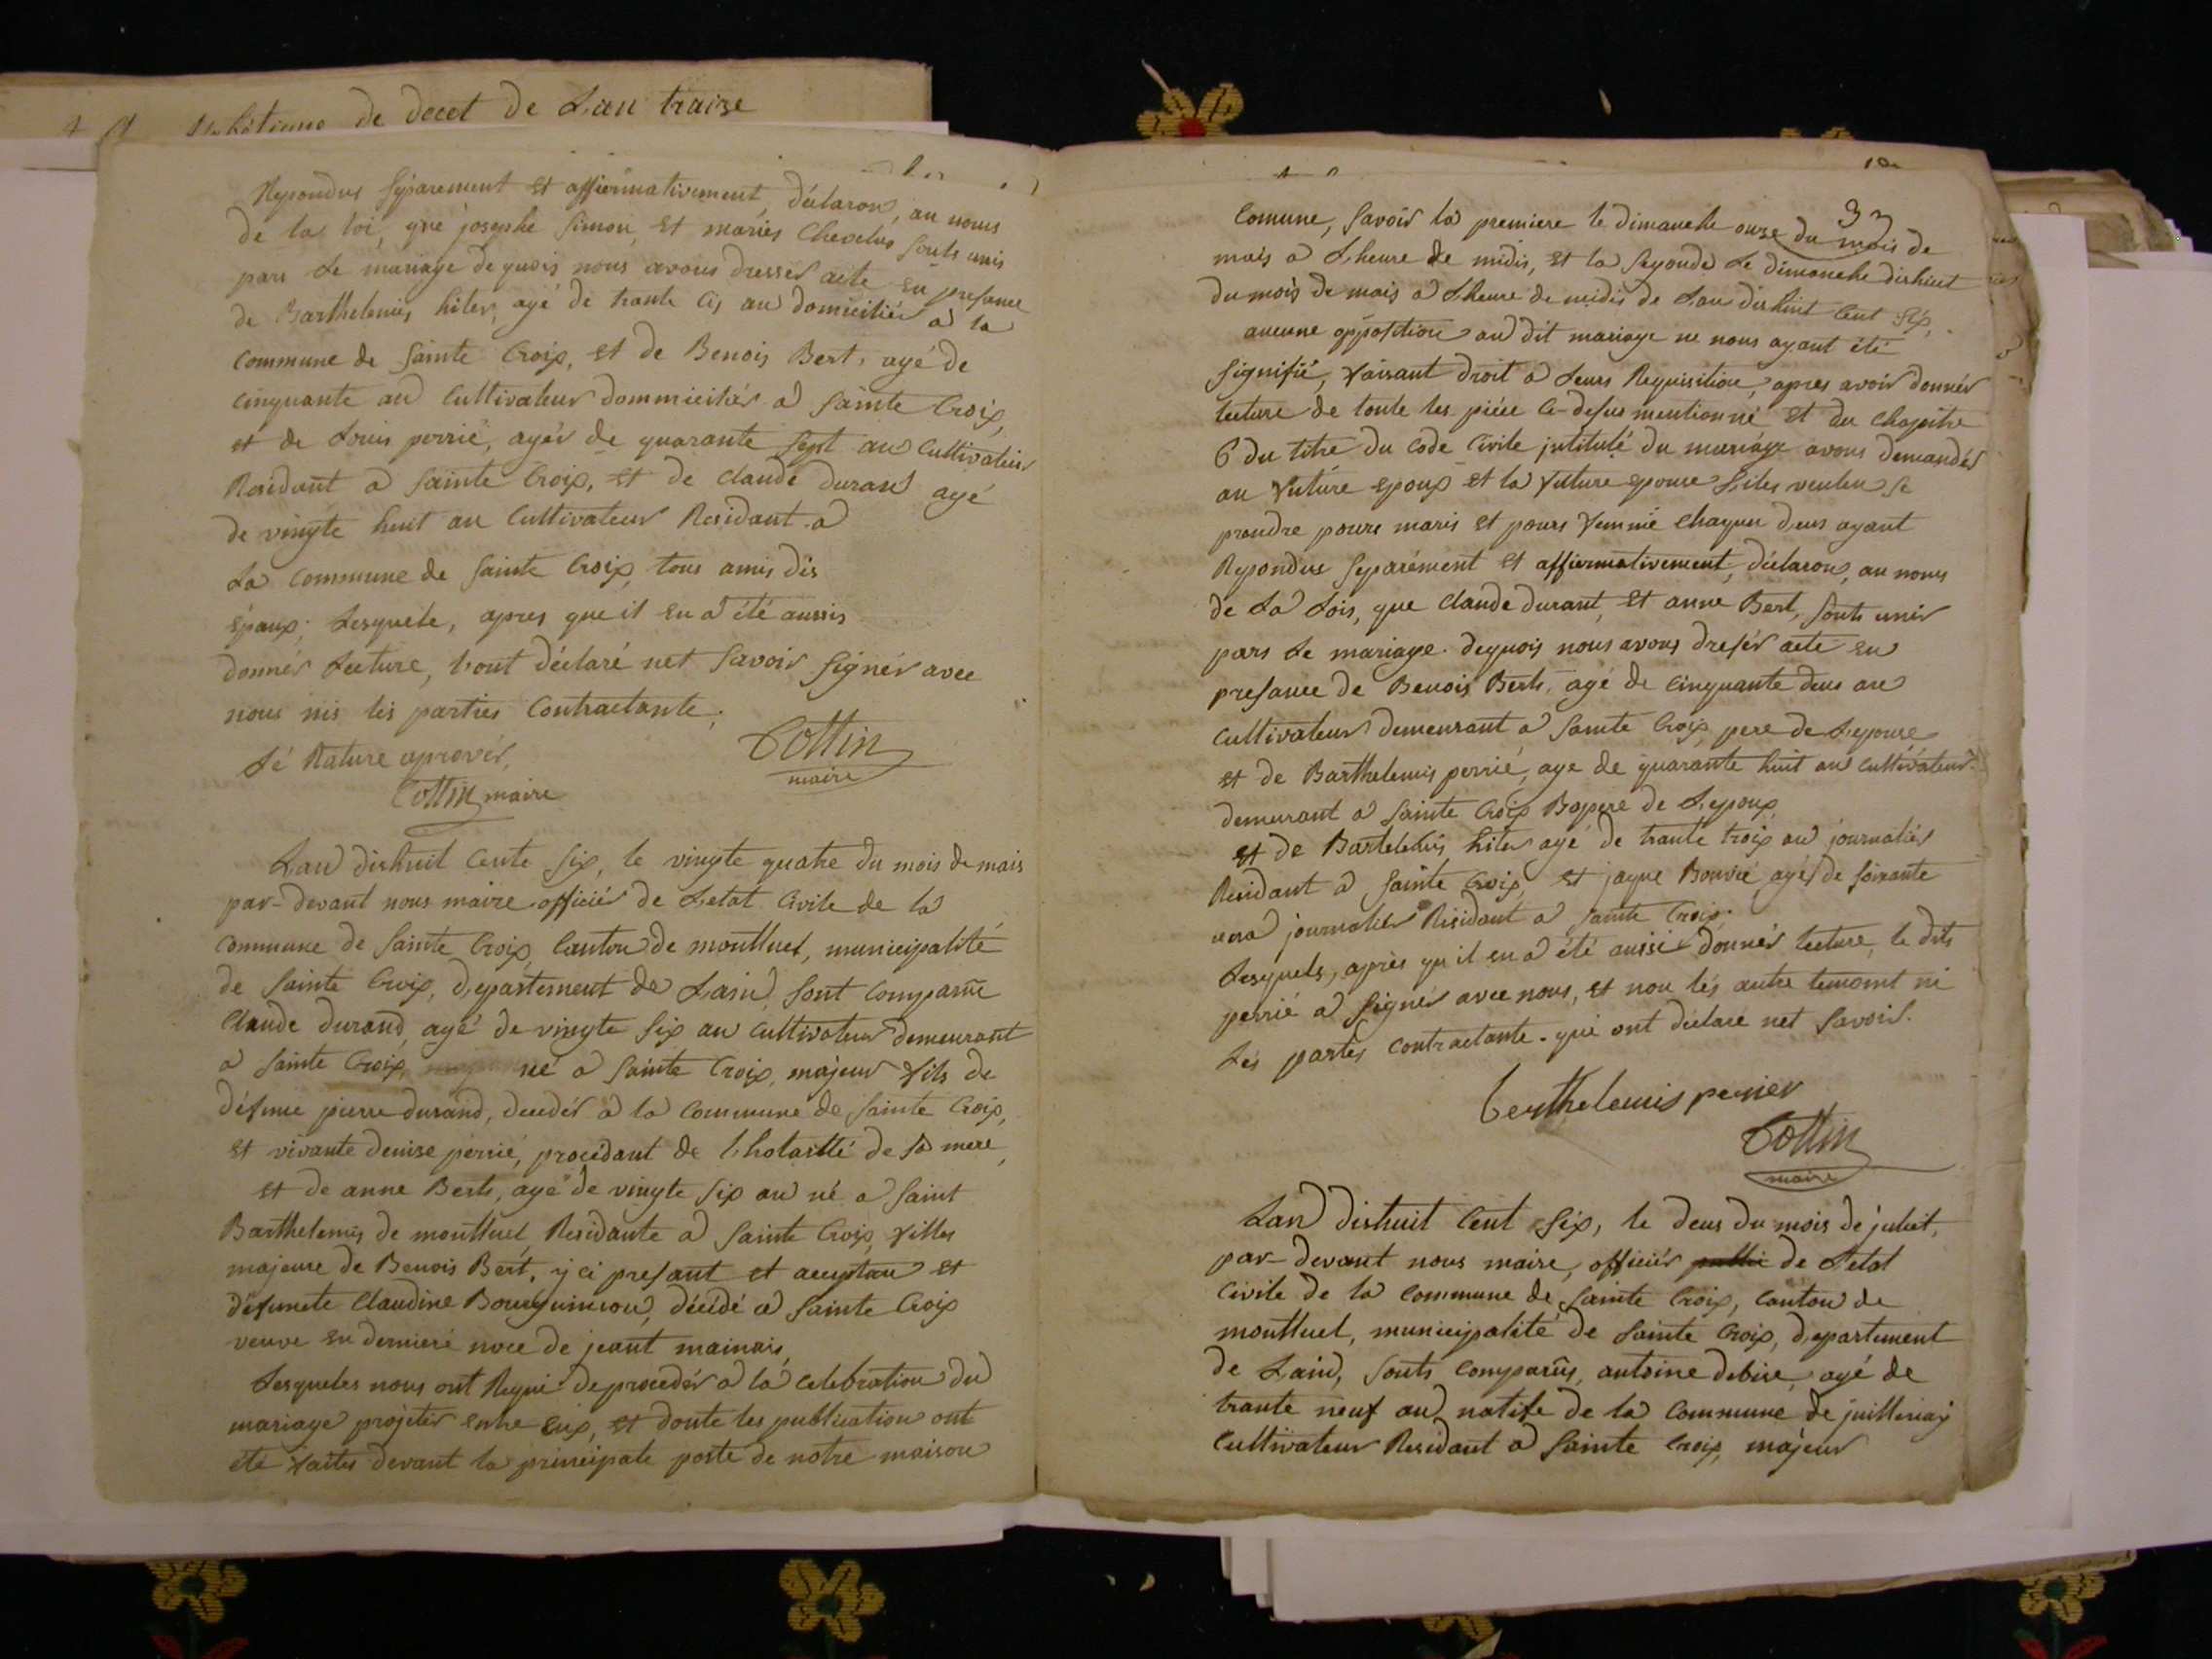 de decet de Lan traize
Repondus séparement et affiermativement, déclaron, au nom
de la loi, que josephe simon, et mariés Chevelus sonts unis
pars Le mariage de quois nous avons dresser acte en presance
de Barthelemis hiler, agé de trante cis an domicilier a la
commune de Sainte Croix, et de Benois Bert, agé de
cinquante an Cultivateur dommicilier a Sainte Croix,
et de Louis perrié, agér de quarante sept an Cultivateur
Residant a Sainte Croix, et de claude duran agé
de vingte huit an Cultivateur Residant a
La Commune de Sainte Croix, tous amis dis
épaux, Lesquele, apres que il en a été aussis
donnér Lecture, l'ont déclaré net savoir signér avec
nous nis lés parties Contractante.
Lé Rature aprovér, Cottin
maire
Cottin maire
Lan dishuit Cente six, le vingte quatre du mois de mais
par-devant nous maire officiér de Letat Civile de la
Commune de Sainte Croix, Canton de montluel, municipalité
de Sainte Croix, Departement de Lain, sont comparue
Claude durand, agé de vingte six an cultivateur demeurant
a Sainte Croix, né a Sainte Croix, majeur fils de
défunc pierre durand, decedér a la Commune de Sainte Croix,
et vivante denise perrié, procédant de l'hotaritté de sa mere,
et de anne Berts, agé de vingte six an né a Saint
Barthelemis de montluel Residante a Sainte Croix, filles
majeure de Benois Bert, y ci presant et acceptan et
défuncte Claudine Bourguinion, décédé a Sainte Croix
veuve en derniere noce de jeant mainais,
Lesqueles nous ont Requi de procedér a la celebration du
mariage projetér entre eux, et donte les publication ont
été faites devant la principale porte de notre maison
33
Comune, savoir la premiere le dimanche onze du mois de
mais a Lheure de midis, et la segonde Le dimanche dishuit
du mois de mais a Lheure de midis de Lan dishuit Cent six,
aucune opposition au dit mariage ne nous ayant été
signifié, faisant droit a Leurs Requisition, apres avoir donnér
lecture de toute les piéce ci-desus mentionné et du Chapitre
6 du titre du Code Civile intitulé du mariage avons demandér
au future epoux et la future epouse siles veulen se
prandre pours maris et pours femme chaqun deus ayant
Repondue separément et affiermativement, déclaron, au nom
de La Lois, que Claude durant, et anne Bert, sonts unir
pars Le mariage. dequois nous avons dresér acte en
presance de Benois Berts, agé de cinquante deus an
Cultivateur demeurant a Sainte Croix pere de Lepouse
et de Barthelemis perrié, age de quarante huit an cultivateur
demeurant a Sainte Croix Bopere de Lepoux,
et de Bartelemis hiler agé de trante trois an journaliér
Residant a Sainte Croix, et jaque Bouvié agér de soixante
journaliér Residant a Sainte Croix.
Lesquels, aprés qu'il en a été aussi donnér lecture, le dits
perrié a signér avec nous, et non lés autre temoint ni
Lés partes contractante. qui ont déclaré net savoir.
berthelemis perrier
Cottin
maire
Lan dishuit Cent six, le deus du mois de juliet,
par-devant nous maire, officiér public de Letat
Civile de la Commune de Sainte Croix, Canton de
montluel, municipalité de Sainte Croix, departement
de Lain, sonts comparûs, antoine debise, agé de
trante neuf an natife de la Commune de juillieniay
Cultivateur Residant a Sainte Croix, majeur